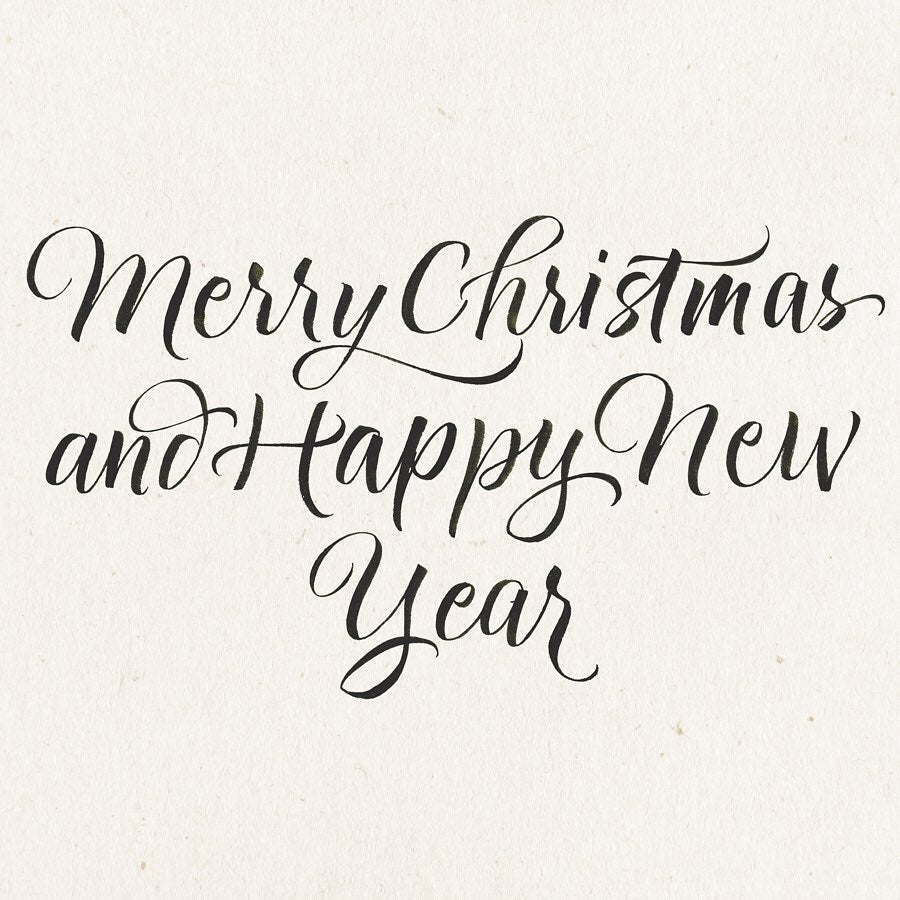 Merry Christmas
and Happy New
Year